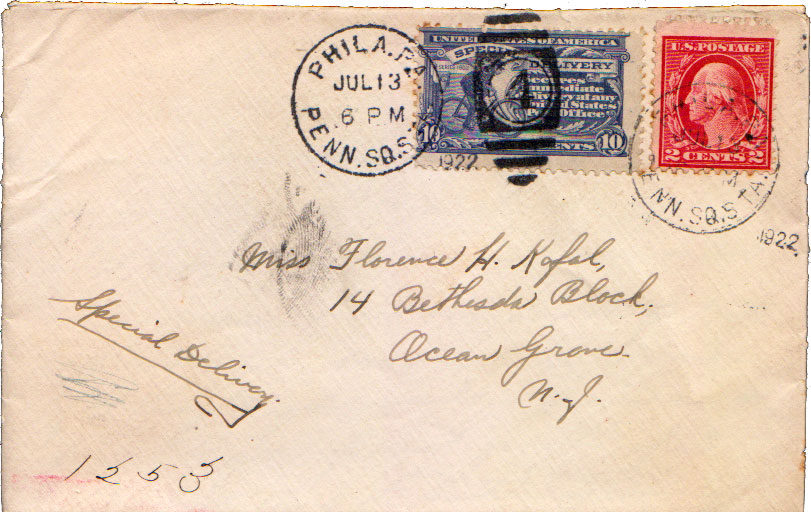 PHILA.PA.
JUL 13
6 PM
PENN.SQ.S.
1922
UNITED STATES OF AMERICA
SPECIAL DELIVERY
Secures
immediate
Delivery at any
United States
Post Office
10 CENTS 10
1
U.S. POSTAGE
2 CENTS 2
PENN.SQ.S
1922
Miss Florence H. Kofal,
14 Bethesda Block,
Ocean Grove
N.J.
Special Delivery.
1253